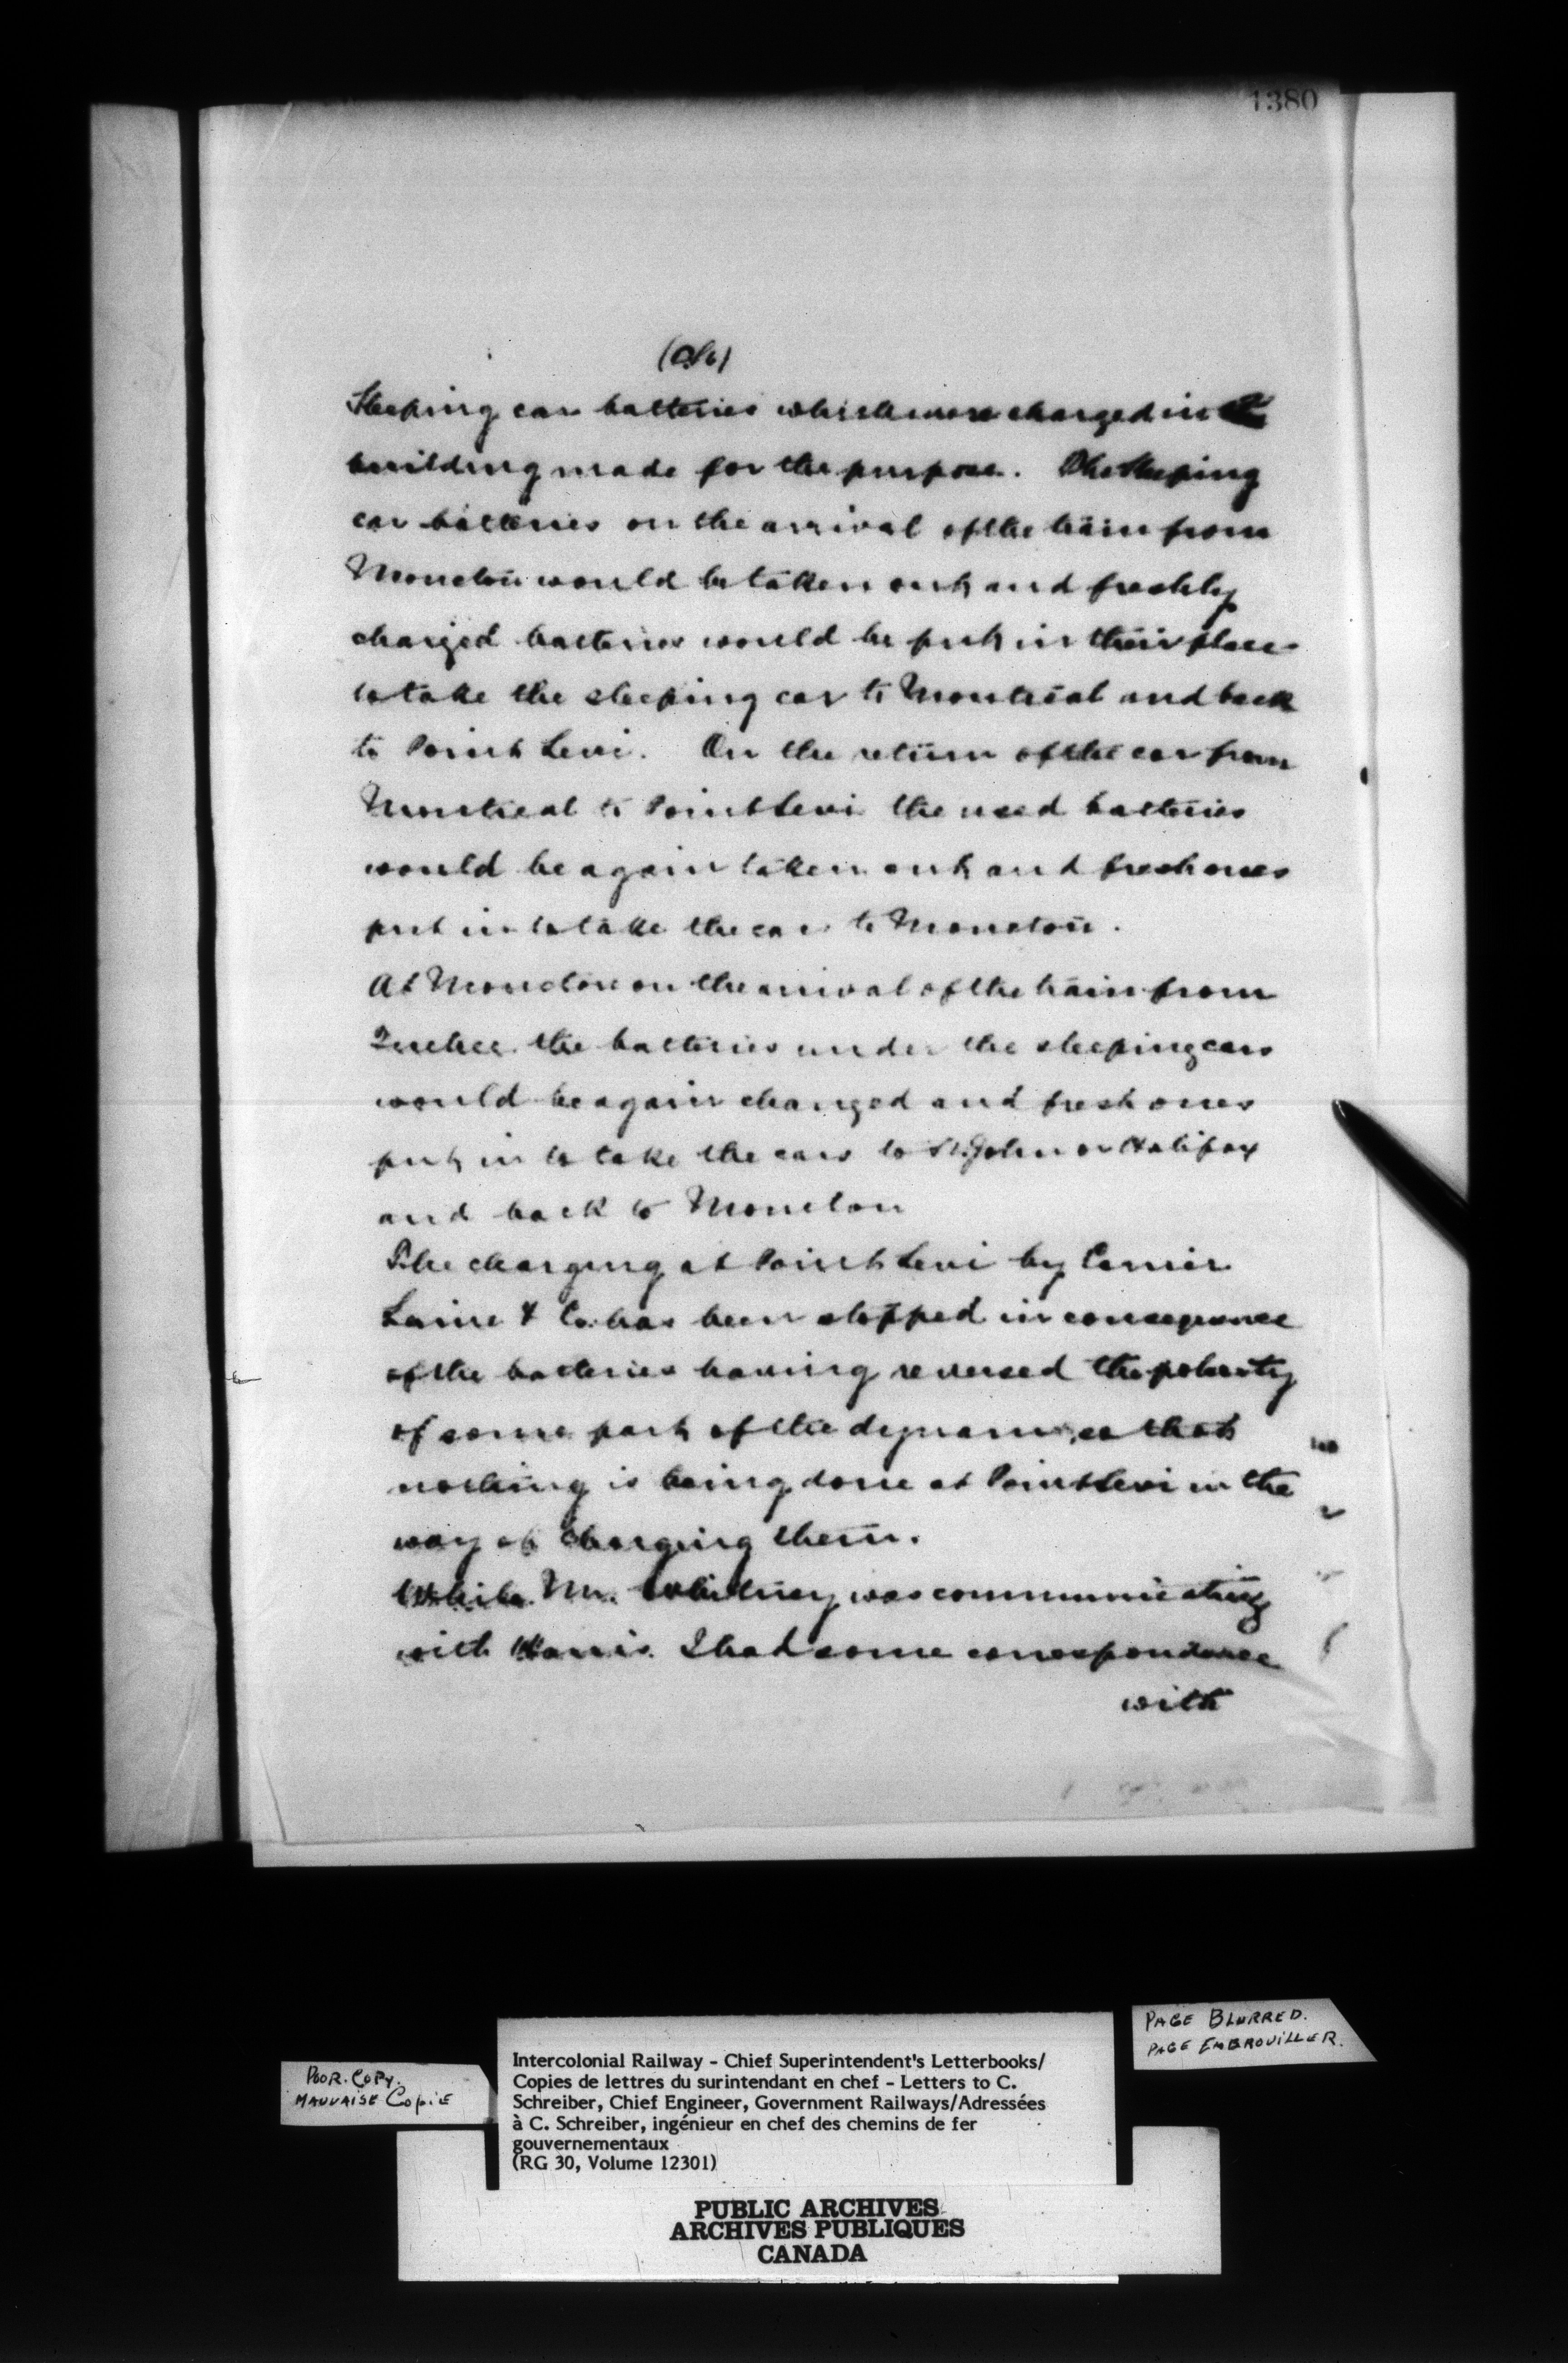 1380
Sleeping car batteries which were charged in a
building made for the purpose. The Sleeping
car batteries on the arrival of the train from
Moncton would be taken out and freshly
charged batteries would be put in their place
to take the sleeping car to Montreal and back
to Point Levi. On the return of the car from
Montreal to Point Levi the used batteries
would be again taken out and fresh ones
put in to take the car to Moncton.
At Moncton on the arrival of the train from
Quebec the batteries under the sleeping cars
would be again changed and fresh ones
put in to take the cars to St. John or Halifax
and back to Moncton
The charging at Point Levi by Carrier
Laine & Co. has been stopped in consequence
of the batteries having reversed the polarity
of some part of the dynamo, so that
nothing is being done at Point Levi in the
way of charging them.
While Mr. Whitney was communicating
with Harris I had some correspondence
with
POOR. COPY.
MAUVAISE COPIE
PAGE BLURRED.
PAGE EMBROUILLER.
Intercolonial Railway - Chief Superintendent's Letterbooks/
Copies de lettres du surintendant en chef - Letters to C.
Schreiber, Chief Engineer, Government Railways/Adressées
à C. Schreiber, ingénieur en chef des chemins de fer
gouvernementaux
(RG 30, Volume 12301)
PUBLIC ARCHIVES
ARCHIVES PUBLIQUES
CANADA